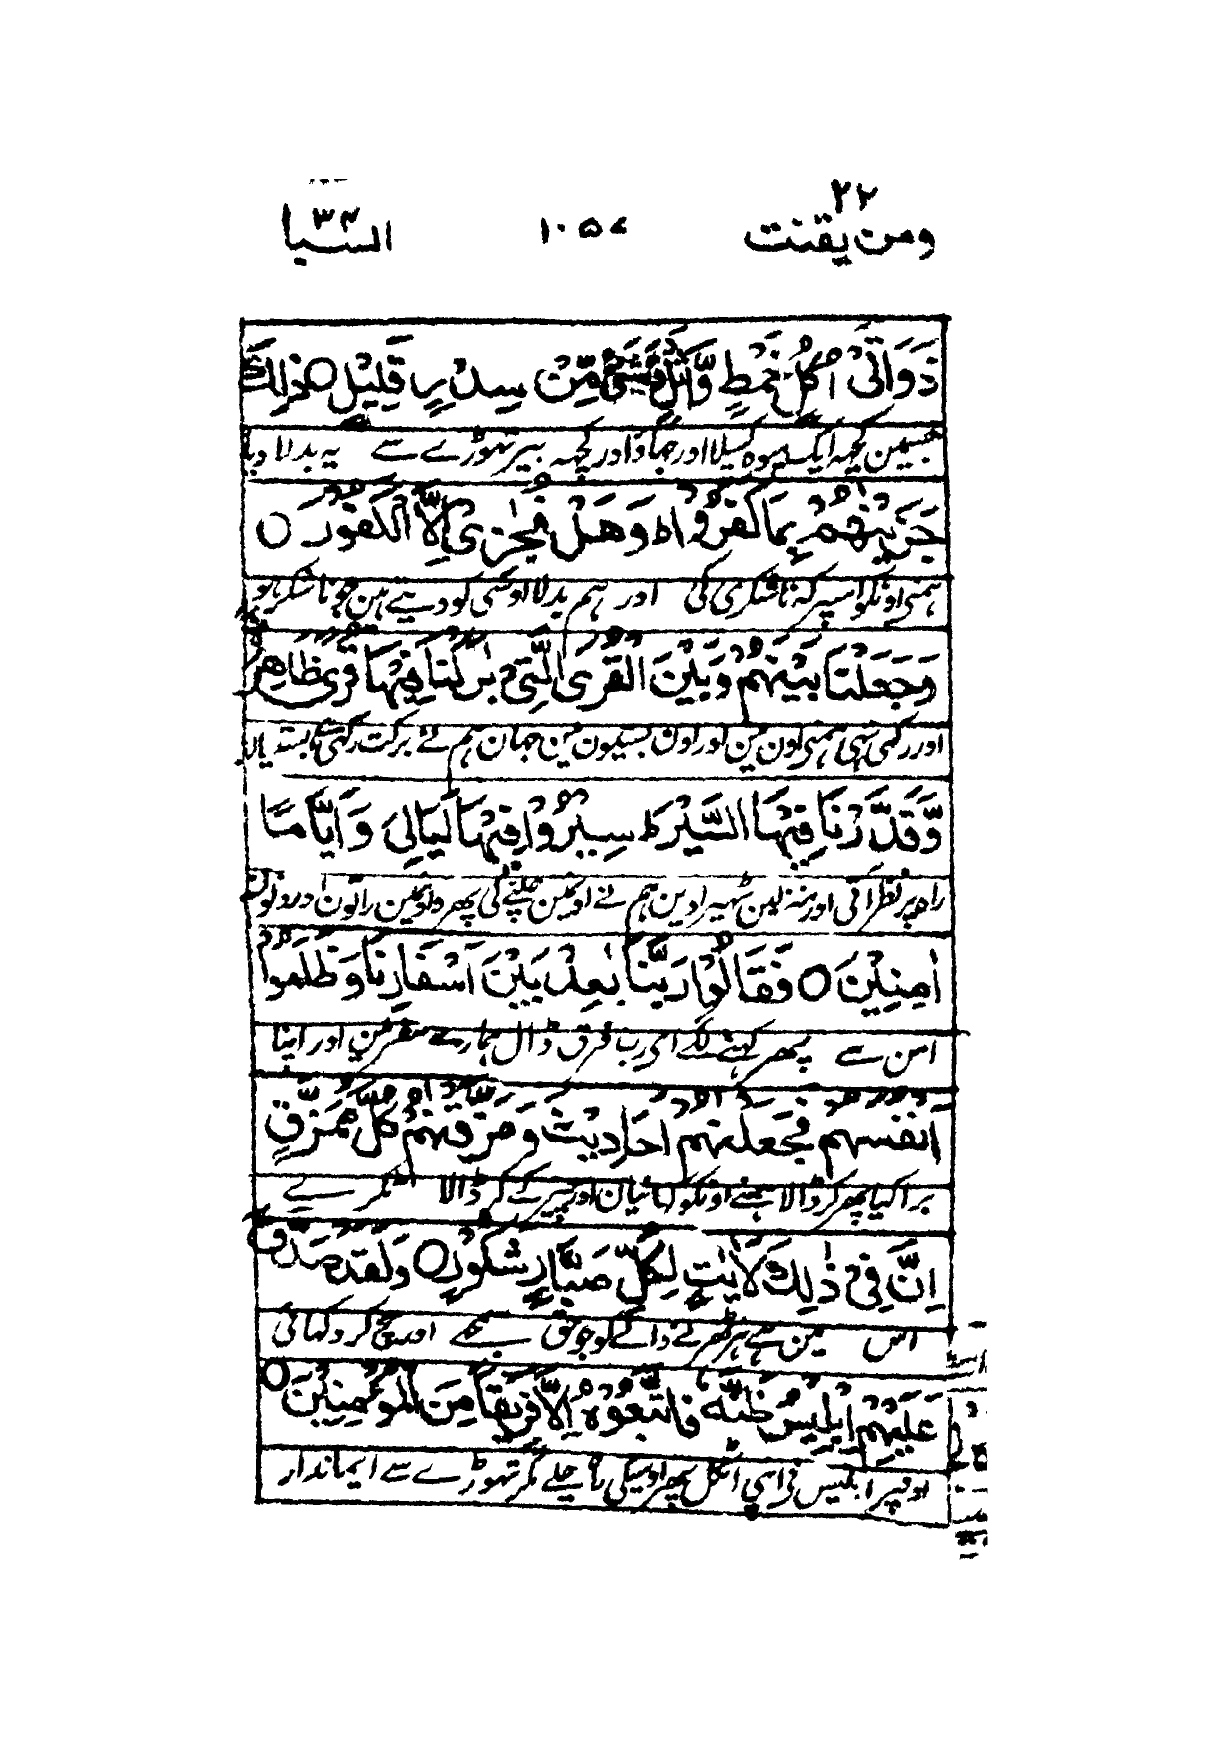 ومن يقنت ٢٢ ١٠٥٧ السبا ٣٤
ذَوَاتَیْ اُكُلٍ خَمْطٍ وَّاَثْلٍ وَّشَیْءٍ مِّنْ سِدْرٍ قَلِیْلٍ ۝ ذٰلِكَ
جسمین کچہہ ایک میوہ کسیلا اور جہاؤ اور کچہہ بیر تہوڑے سے یہ بدلا دیا
جَزَیْنٰهُمْ بِمَا كَفَرُوْا ط وَهَلْ نُجٰزِیْ اِلَّا الْكَفُوْرَ ۝
ہمنی اونکو اسپر کہ ناشکری کی اور ہم بدلا اوسی کو دیتے ہین جو ناشکر ہو
وَجَعَلْنَا بَیْنَهُمْ وَبَیْنَ الْقُرَی الَّتِیْ بٰرَكْنَا فِیْهَا قُرًی ظَاهِرَةً
اور رکہی تہی ہمنی اون مین اور اون بستیون مین جہان ہم نے برکت رکہی ہے بستیان
وَّقَدَّرْنَا فِیْهَا السَّیْرَ ط سِیْرُوْا فِیْهَا لَیَالِیَ وَاَیَّامًا
راہ پر نظر آتی اور منزلین ٹہیرا دین ہم نے اونمین چلنے کی پھرو اونمین راتون اور دنون
اٰمِنِیْنَ ۝ فَقَالُوْا رَبَّنَا بٰعِدْ بَیْنَ اَسْفَارِنَا وَظَلَمُوْا
امن سے پھر کہنے لگے ای رب فرق ڈال ہمارے سفر مین اور اپنا
اَنْفُسَهُمْ فَجَعَلْنٰهُمْ اَحَادِیْثَ وَمَزَّقْنٰهُمْ كُلَّ مُمَزَّقٍ
برا کیا پھر کر ڈالا ہمنے اونکو کہانیان اور چیر کے کر ڈالا ٹکرے
اِنَّ فِیْ ذٰلِكَ لَاٰیٰتٍ لِّكُلِّ صَبَّارٍ شَكُوْرٍ ۝ وَلَقَدْ صَدَّقَ
اس مین ہر ٹھرنے والے کو جو حق سمجھے اور سچ کر دکہائی
عَلَیْهِمْ اِبْلِیْسُ ظَنَّهٗ فَاتَّبَعُوْهُ اِلَّا فَرِیْقًا مِّنَ الْمُؤْمِنِیْنَ ۝
اونپر ابلیس نی اپنی اٹکل پھر اوسیکی راہ چلے مگر تہوڑے سے ایماندار